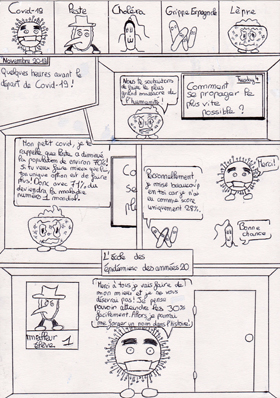 Covid-19
Peste
Choléra
Grippe Espagnole
Lèpre
Novembre 2019
Quelques heures avant le
départ de Covid-19 !
Nous te souhaitons
de faire le plus
grand massacre de
l'humanité !
Comment
se propager le
plus vite
possible ?
Mon petit covid, je te
rappelle que Peste a diminué
la population de environ 70% !
Si tu veux faire mieux que
ton unique option est de faire
plus ! Donc avec 71%, du
deviendra la maladie
numéro 1 mondial.
Personnellement
je mise beaucoup
en toi car je n'ai
eu comme score
uniquement 28%.
Merci !
Bonne
chance
L'école des
Épidémies des années 20
Merci à tous je vais faire de
mon mieux et je ne vous
décevrai pas ! Je pense
pouvoir atteindre les 30%
facilement. Alors je pourrai
me forger un nom dans l'histoire !
meilleur
élève
1